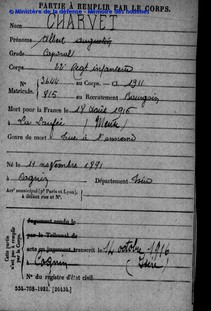 PARTIE À REMPLIR PAR LE CORPS.
© Ministère de la défense - Mémoire des hommes
CHARVET
Nom
Prénoms Albert Augustin
Grade Caporal
Corps 22e Régt Infanterie
N° 3644 au Corps. — Cl. 1911
Matricule. 815 au Recrutement Bourgoin
Mort pour la France le 18 août 1916
à La Laufée (Meuse)
Genre de mort Tué à l'ennemi
Né le 11 novembre 1891
à Cognin Département Isère
Arrt municipal (pr Paris et Lyon),
à défaut rue et N°.
Cette partie
n'est pas à remplir
par le Corps.
Jugement rendu le
par le Tribunal de
acte ou jugement transcrit le 14 octobre 1916
à Cognin (Isère)
N° du registre d'état civil
534-708-1921. [26434.]